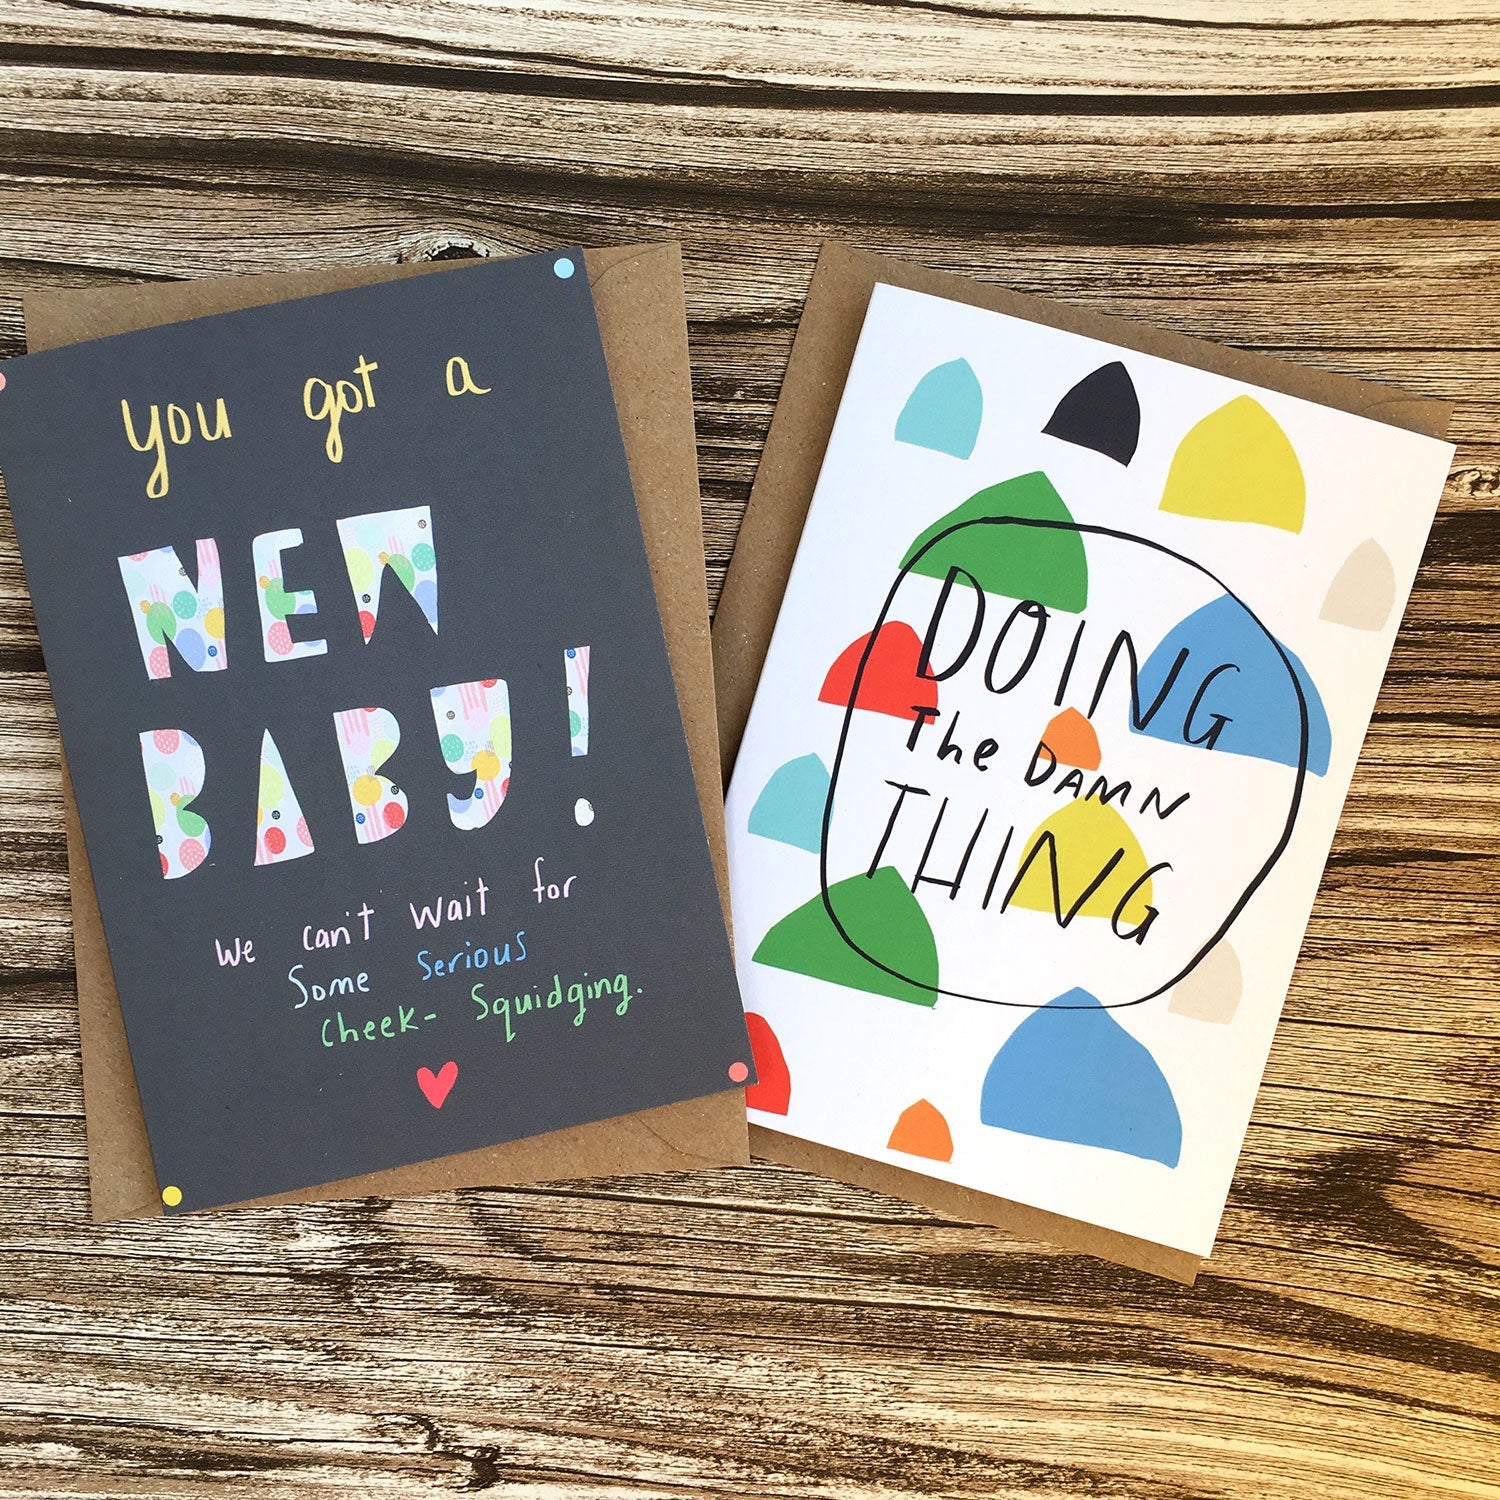 you got a
NEW
BABY!
We can't wait for
Some Serious
Cheek- Squidging.
DOING
The DAMN
THING